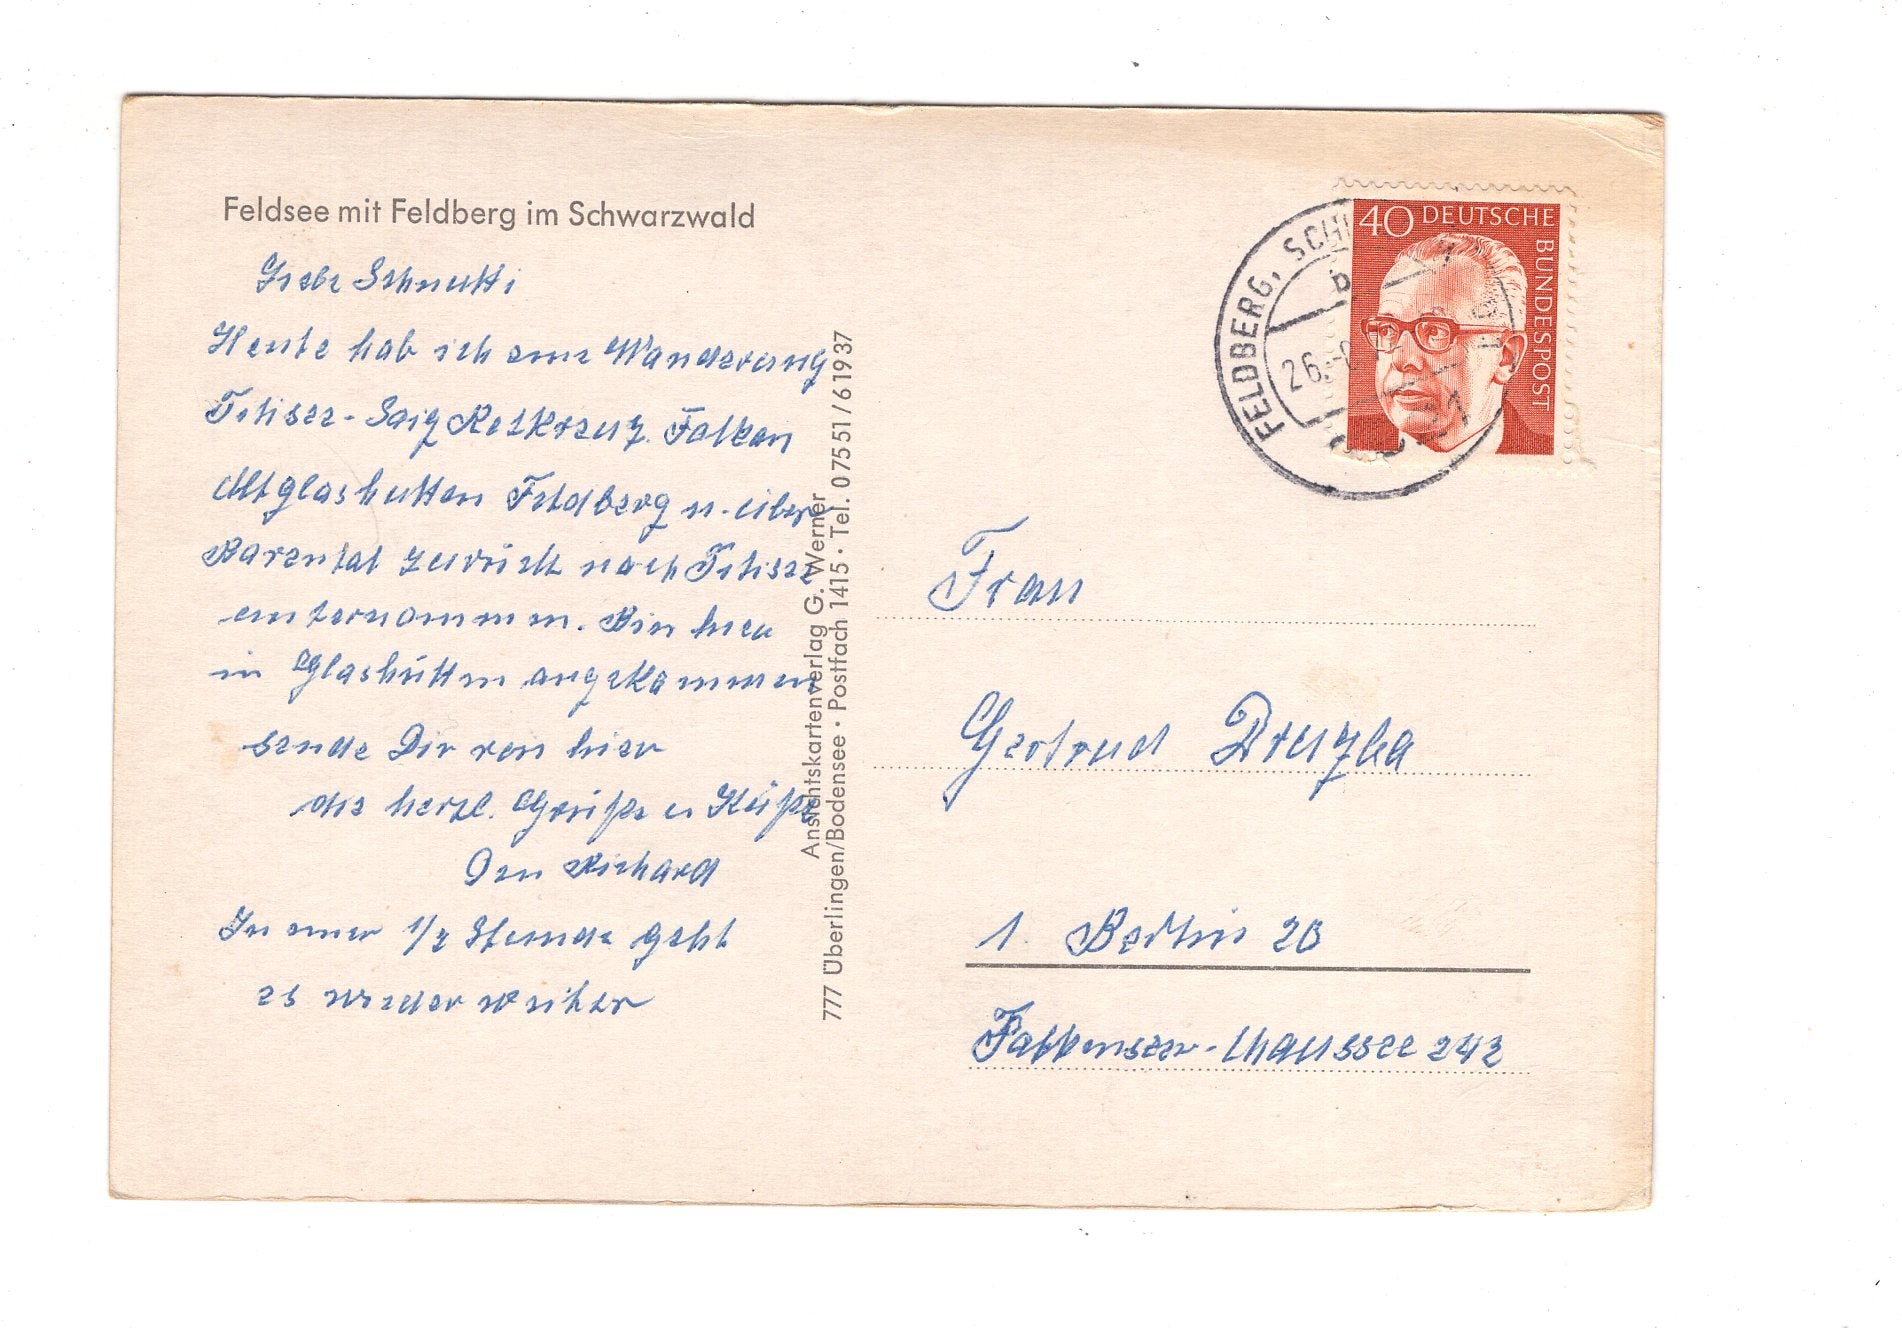 Feldsee mit Feldberg im Schwarzwald
Liebe Schnutti
Heute hab ich eine Wanderung
Titisee-Saig Rotkreuz. Falkau
Altglashutten Feldberg u. über
Barental zurück nach Titisee
unternommen. Bin hier
in Glashütten angekommen
sende Dir von hier
die herzl. Grüße u Küße
Dein Richard
In einer 1/2 Stunde geht
es wieder weiter
Ansichtskartenverlag G. Werner
777 Überlingen/Bodensee · Postfach 1415 · Tel. 07551/61937
FELDBERG, SCH
b
26.
40 DEUTSCHE
BUNDESPOST
Frau
Gertrud Druzba
1. Berlin 20
Falkenseer-Chaussee 242